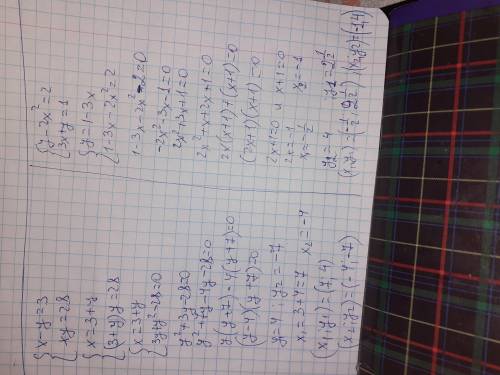 { x-y=3
{ xy=28
{ x=3+y
{ (3+y)y=28
{ x=3+y
{ 3y+y²-28=0
y²+3y-28=0
y²+7y-4y-28=0
y(y+7)-4(y+7)=0
(y-4)(y+7)=0
y=4 y₂=-7
x₁=3+4=7 x₂=-4
(x₁,y₁)=(7,4)
(x₂,y₂)=(-4,-7)
{ y-2x²=2
{ 3x+y=1
{ y=1-3x
{ 1-3x-2x²=2
1-3x-2x²-2=0
-2x²-3x-1=0
2x²+3x+1=0
2x²+x+2x+1=0
2x(x+1)+(x+1)=0
(2x+1)(x+1)=0
2x+1=0 и x+1=0
2x=-1
x₁=-1/2 x₂=-1
y₂=4 y₁=2 1/2
(x₁,y₁)=(-1/2, 2 1/2), (x₂,y₂)=(-1,4)